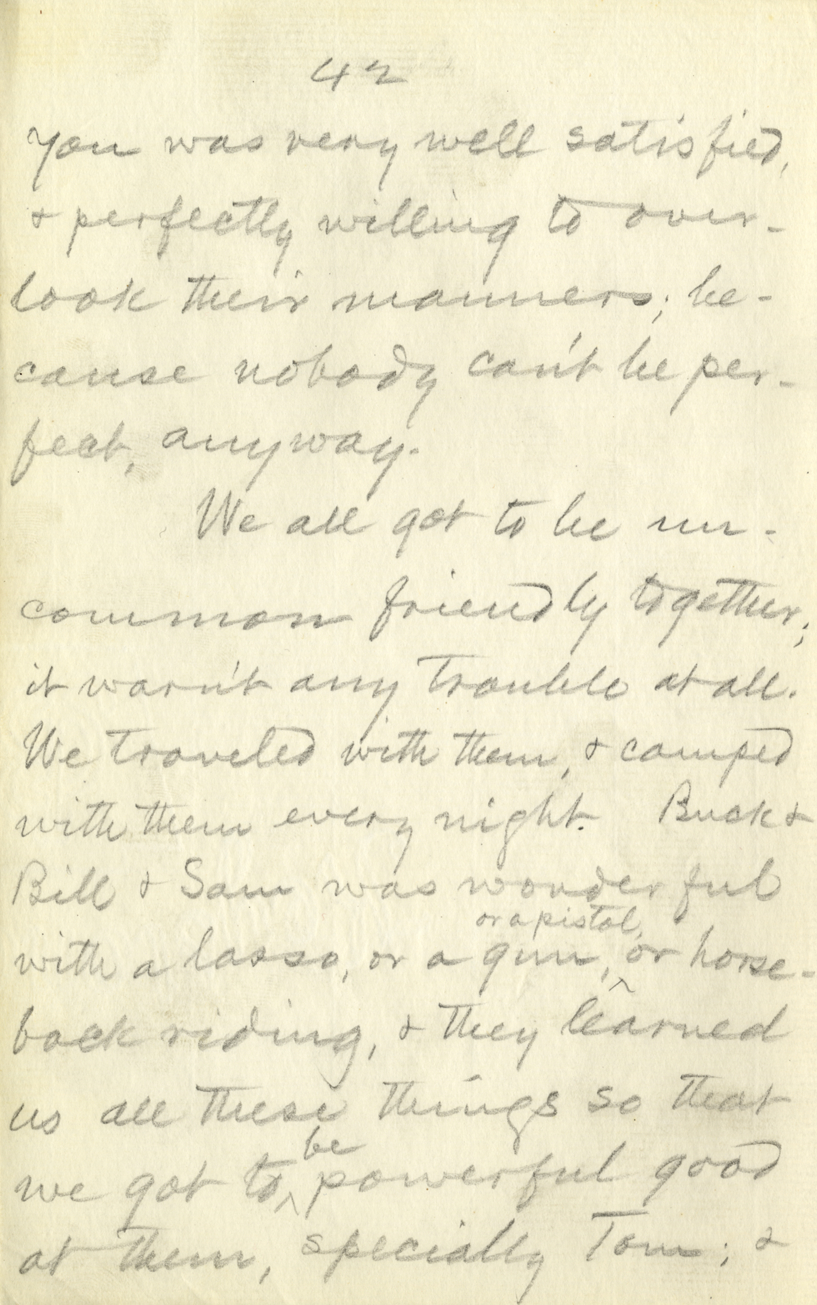 42
you was very well satisfied,
& perfectly willing to over-
look their manners; be-
cause nobody can't be per-
fect, anyway.
We all got to be un-
common friendly together;
it warn't any trouble at all.
We traveled with them, & camped
with them every night. Buck &
Bill & Sam was wonderful
or a pistol,
with a lasso, or a gun, or horse-
back riding, & they learned
us all these things so that
be
we got to powerful good
at them, specially Tom; &